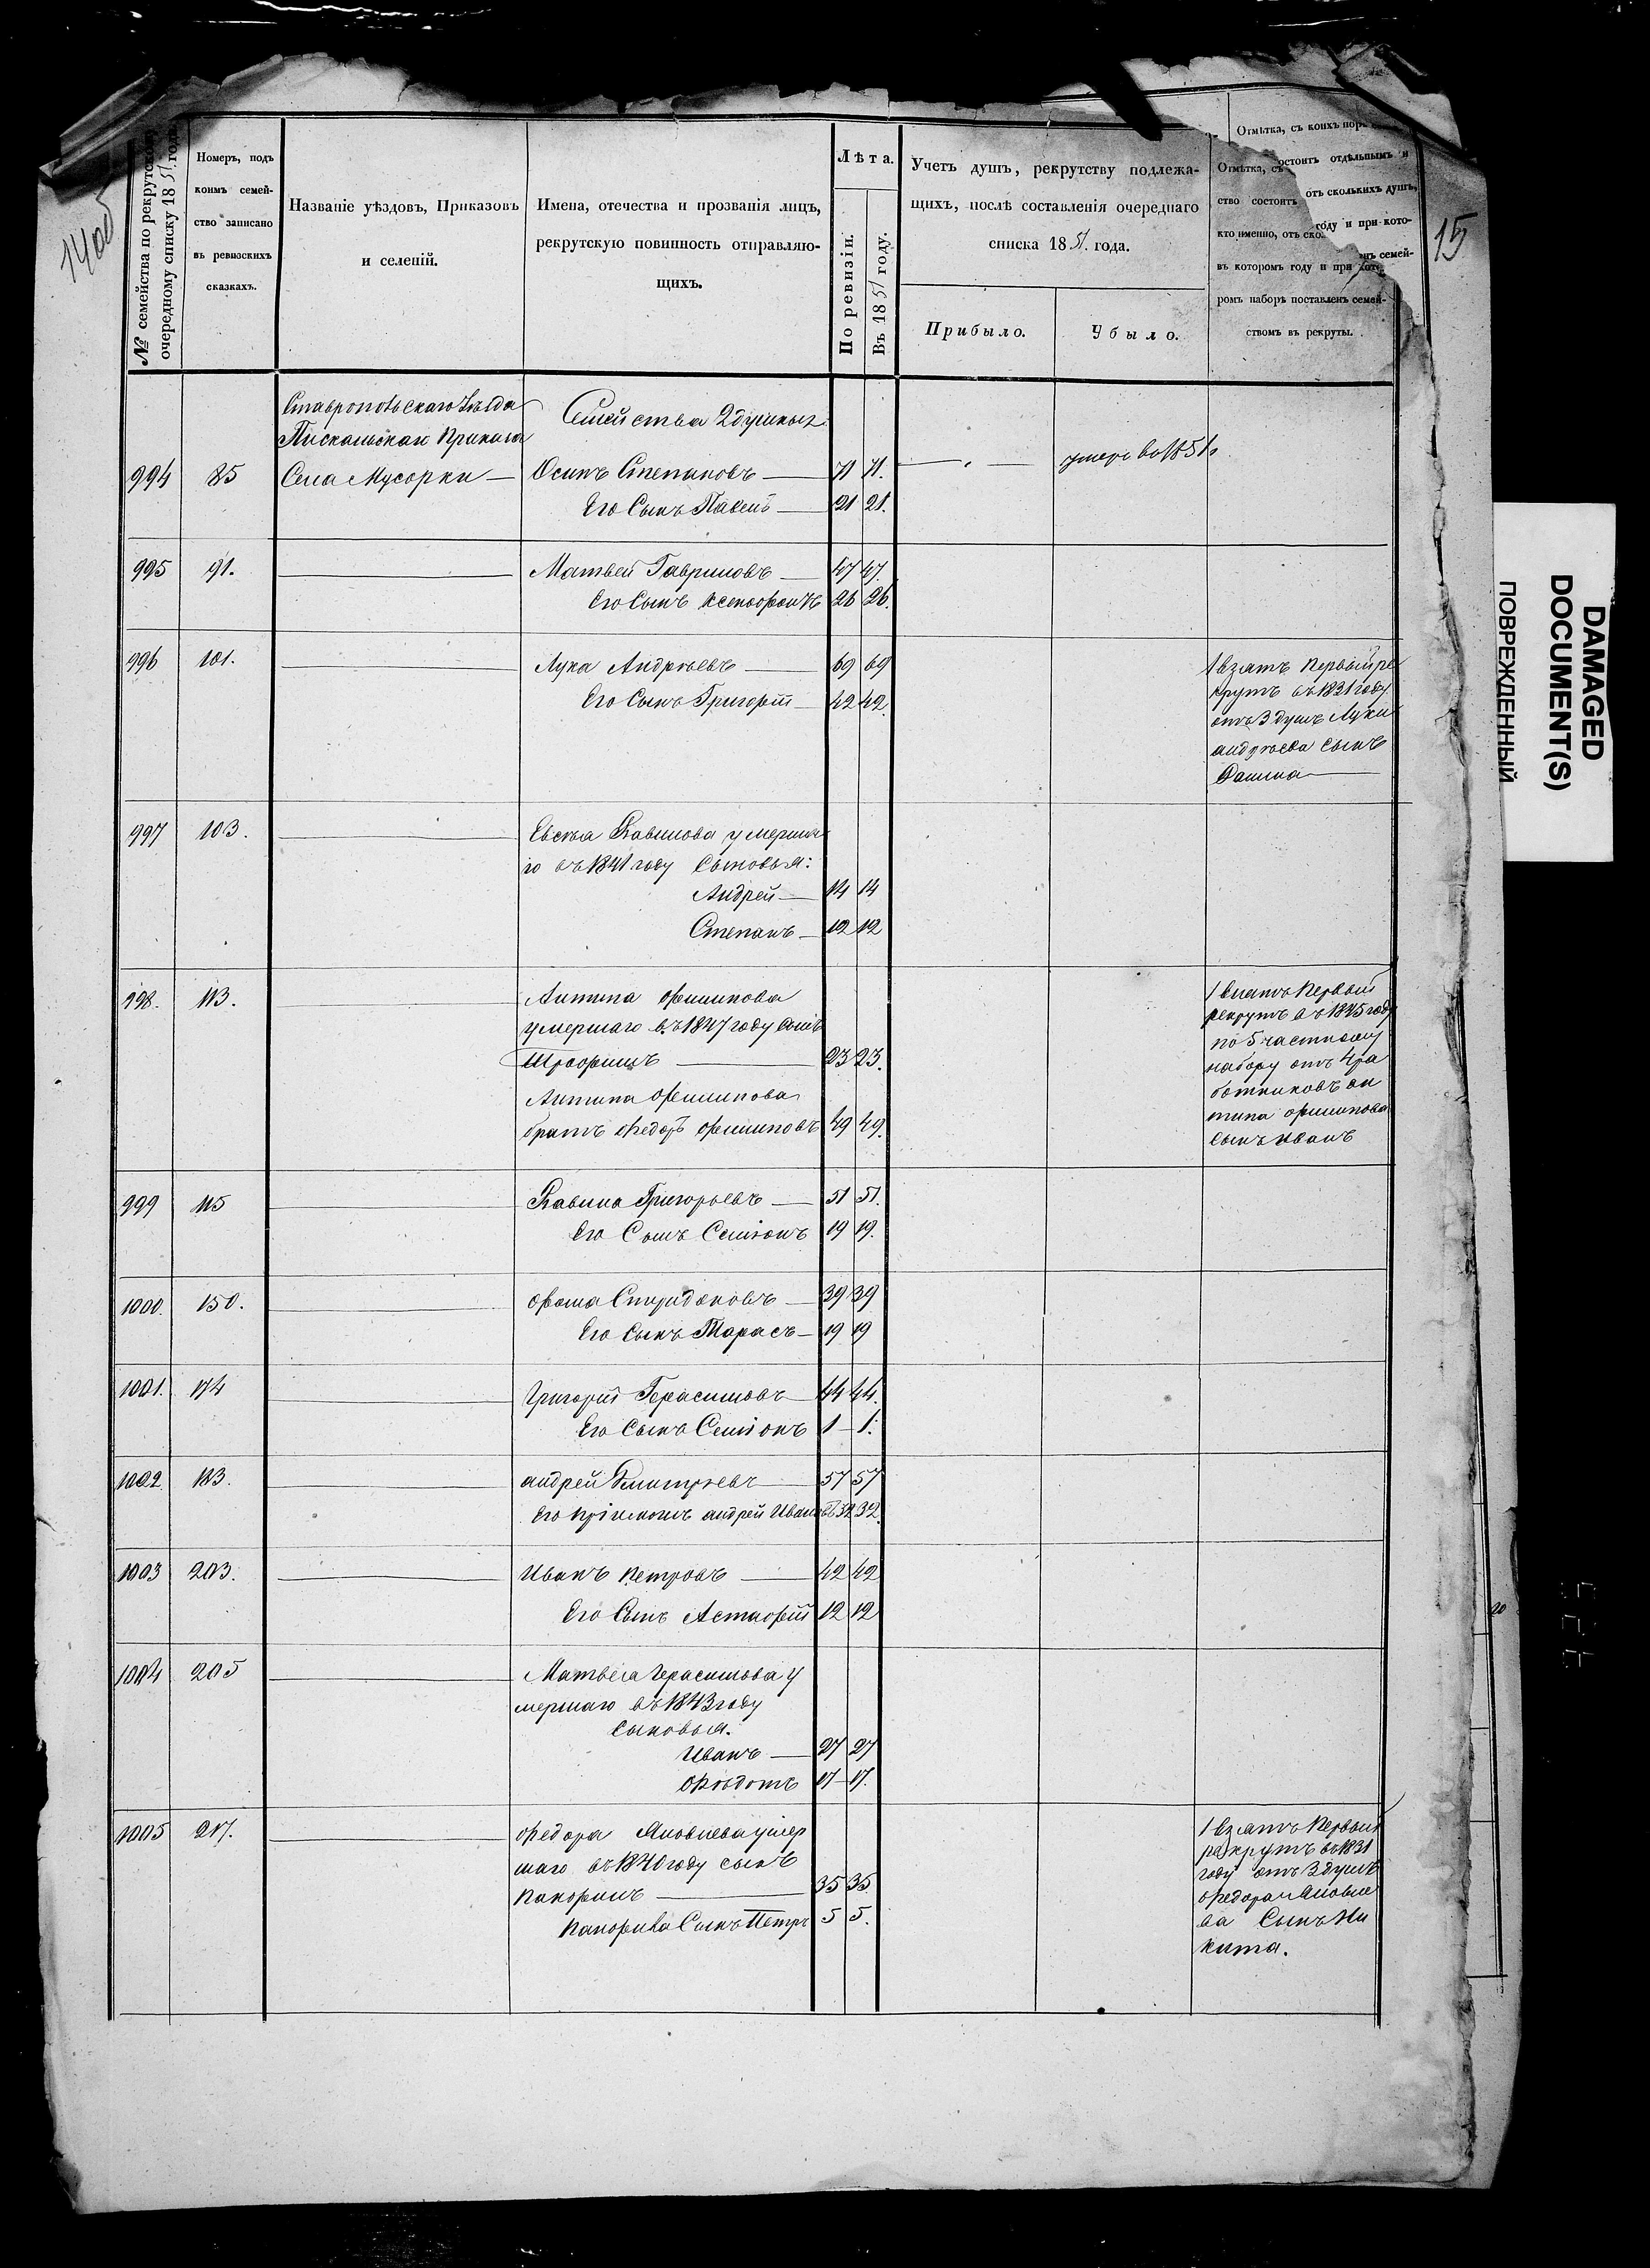 140об
15
№ семейства по рекрутскому очередному списку 1851 года.
Номеръ, подъ коимъ семей-
ство записано
въ ревизскихъ
сказкахъ.
Названіе уѣздовъ, Приказовъ
и селеній.
Имена, отечества и прозванія лицъ,
рекрутскую повинность отправляю-
щихъ.
Лѣта.
По ревизіи.
Въ 1851 году.
Учетъ душъ, рекрутству подлежа-
щихъ, послѣ составленія очереднаго
списка 1851 года.
Прибыло.
Убыло.
Отмѣтка, съ коихъ пор
Отмѣтка, съ
состоитъ отдѣльнымъ и
ство состоитъ
отъ сколькихъ душъ,
кто именно, отъ ско
году и при кото-
въ которомъ году и при кото
семей-
ромъ наборѣ поставленъ семей-
ствомъ въ рекруты.
Ставропольскаго Уѣзда
Семейства 2 душныхъ
Пискальскаго Приказа
994 85 Села Мусорки — Осипъ Степановъ — 71 71. — умеръ въ 1851г
Его Сынъ Павелъ — 21 21.
995 91. Матвей Гавриловъ — 47 47.
Его Сынъ Ксенофонтъ 26 26.
996 101. Лука Андрѣевъ — 69 69
Его Сынъ Григорій — 42 42.
1 взятъ первый ре
крутъ въ 1831 году
отъ 3 душъ Луки
андрѣева сынъ
Фатина
997 103. Евсѣя Савинова умерша
го въ 1841 году Сыновья:
Андрей — 14 14
Степанъ — 12 12
998. 113. Антипа филипова
умершаго въ 1847 году сынъ
Трофимъ — 23 23.
Антипа филипова
братъ федоръ филиповъ 49 49.
1 взятъ первый
рекрутъ въ 1845 году
по 5 частному
набору отъ 4 ра
ботниковъ ан
типа филипова
сынъ иванъ
999 115 Савина Григорьевъ — 51 51.
Его Сынъ Семіонъ 19 19.
1000. 150. фома Спиридоновъ — 39 39
Его Сынъ Тарасъ — 19 19
1001. 174 Григорій Герасимовъ — 44 44.
Его Сынъ Семіонъ 1 — 1.
1002. 183. андрей Дмитріевъ — 57 57
Его пріемышъ андрей Ивановъ 32 32.
1003 203. Иванъ Петровъ — 42 42
Его Сынъ Астафій 12 12
1004 205 Матвея герасимова у
мершаго въ 1843 году
сыновья.
Иванъ — 27 27
Федотъ 17 — 17.
1005 217. федора Яковлева умер
шаго въ 1840 году сынъ
Панфилъ — 35 35
Панфила Сынъ Петръ 5 5.
1 взятъ Первый
рекрутъ въ 1831
году отъ 3 душъ
федора Яковле
ва Сынъ Ни
кита.
DAMAGED
DOCUMENT(S)
ПОВРЕЖДЕННЫЙ